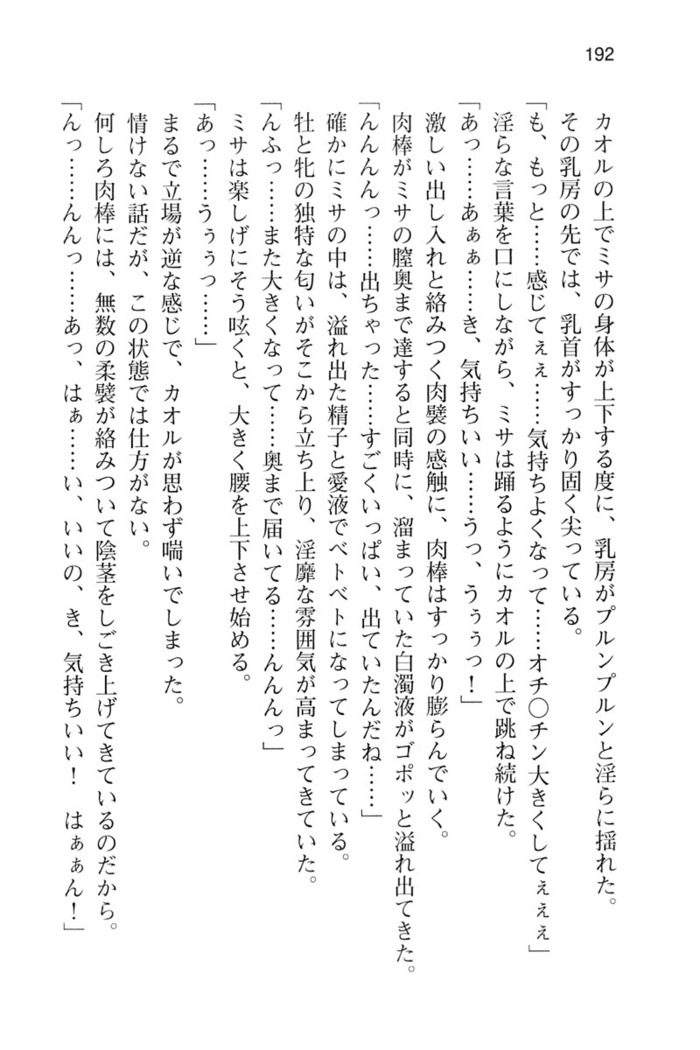 192
カオルの上でミサの身体が上下する度に、乳房がプルンプルンと淫らに揺れた。
その乳房の先では、乳首がすっかり固く尖っている。
「も、もっと……感じてぇぇ……気持ちよくなって……オチ〇チン大きくしてぇぇぇ」
淫らな言葉を口にしながら、ミサは踊るようにカオルの上で跳ね続けた。
「あっ……あぁぁ……き、気持ちいい……うっ、うぅぅっ！」
激しい出し入れと絡みつく肉襞の感触に、肉棒はすっかり膨らんでいく。
肉棒がミサの膣奥まで達すると同時に、溜まっていた白濁液がゴポッと溢れ出てきた。
「んんんんっ……出ちゃった……すごくいっぱい、出ていたんだね……」
確かにミサの中は、溢れ出た精子と愛液でベトベトになってしまっている。
牡と牝の独特な匂いがそこから立ち上り、淫靡な雰囲気が高まってきていた。
「んふっ……また大きくなって……奥まで届いてる……んんんっ」
ミサは楽しげにそう呟くと、大きく腰を上下させ始める。
「あっ……うぅぅっ……」
まるで立場が逆な感じで、カオルが思わず喘いでしまった。
情けない話だが、この状態では仕方がない。
何しろ肉棒には、無数の柔襞が絡みついて陰茎をしごき上げてきているのだから。
「んっ……んんっ……あっ、はぁ……い、いいの、き、気持ちいい！　はぁぁん！」